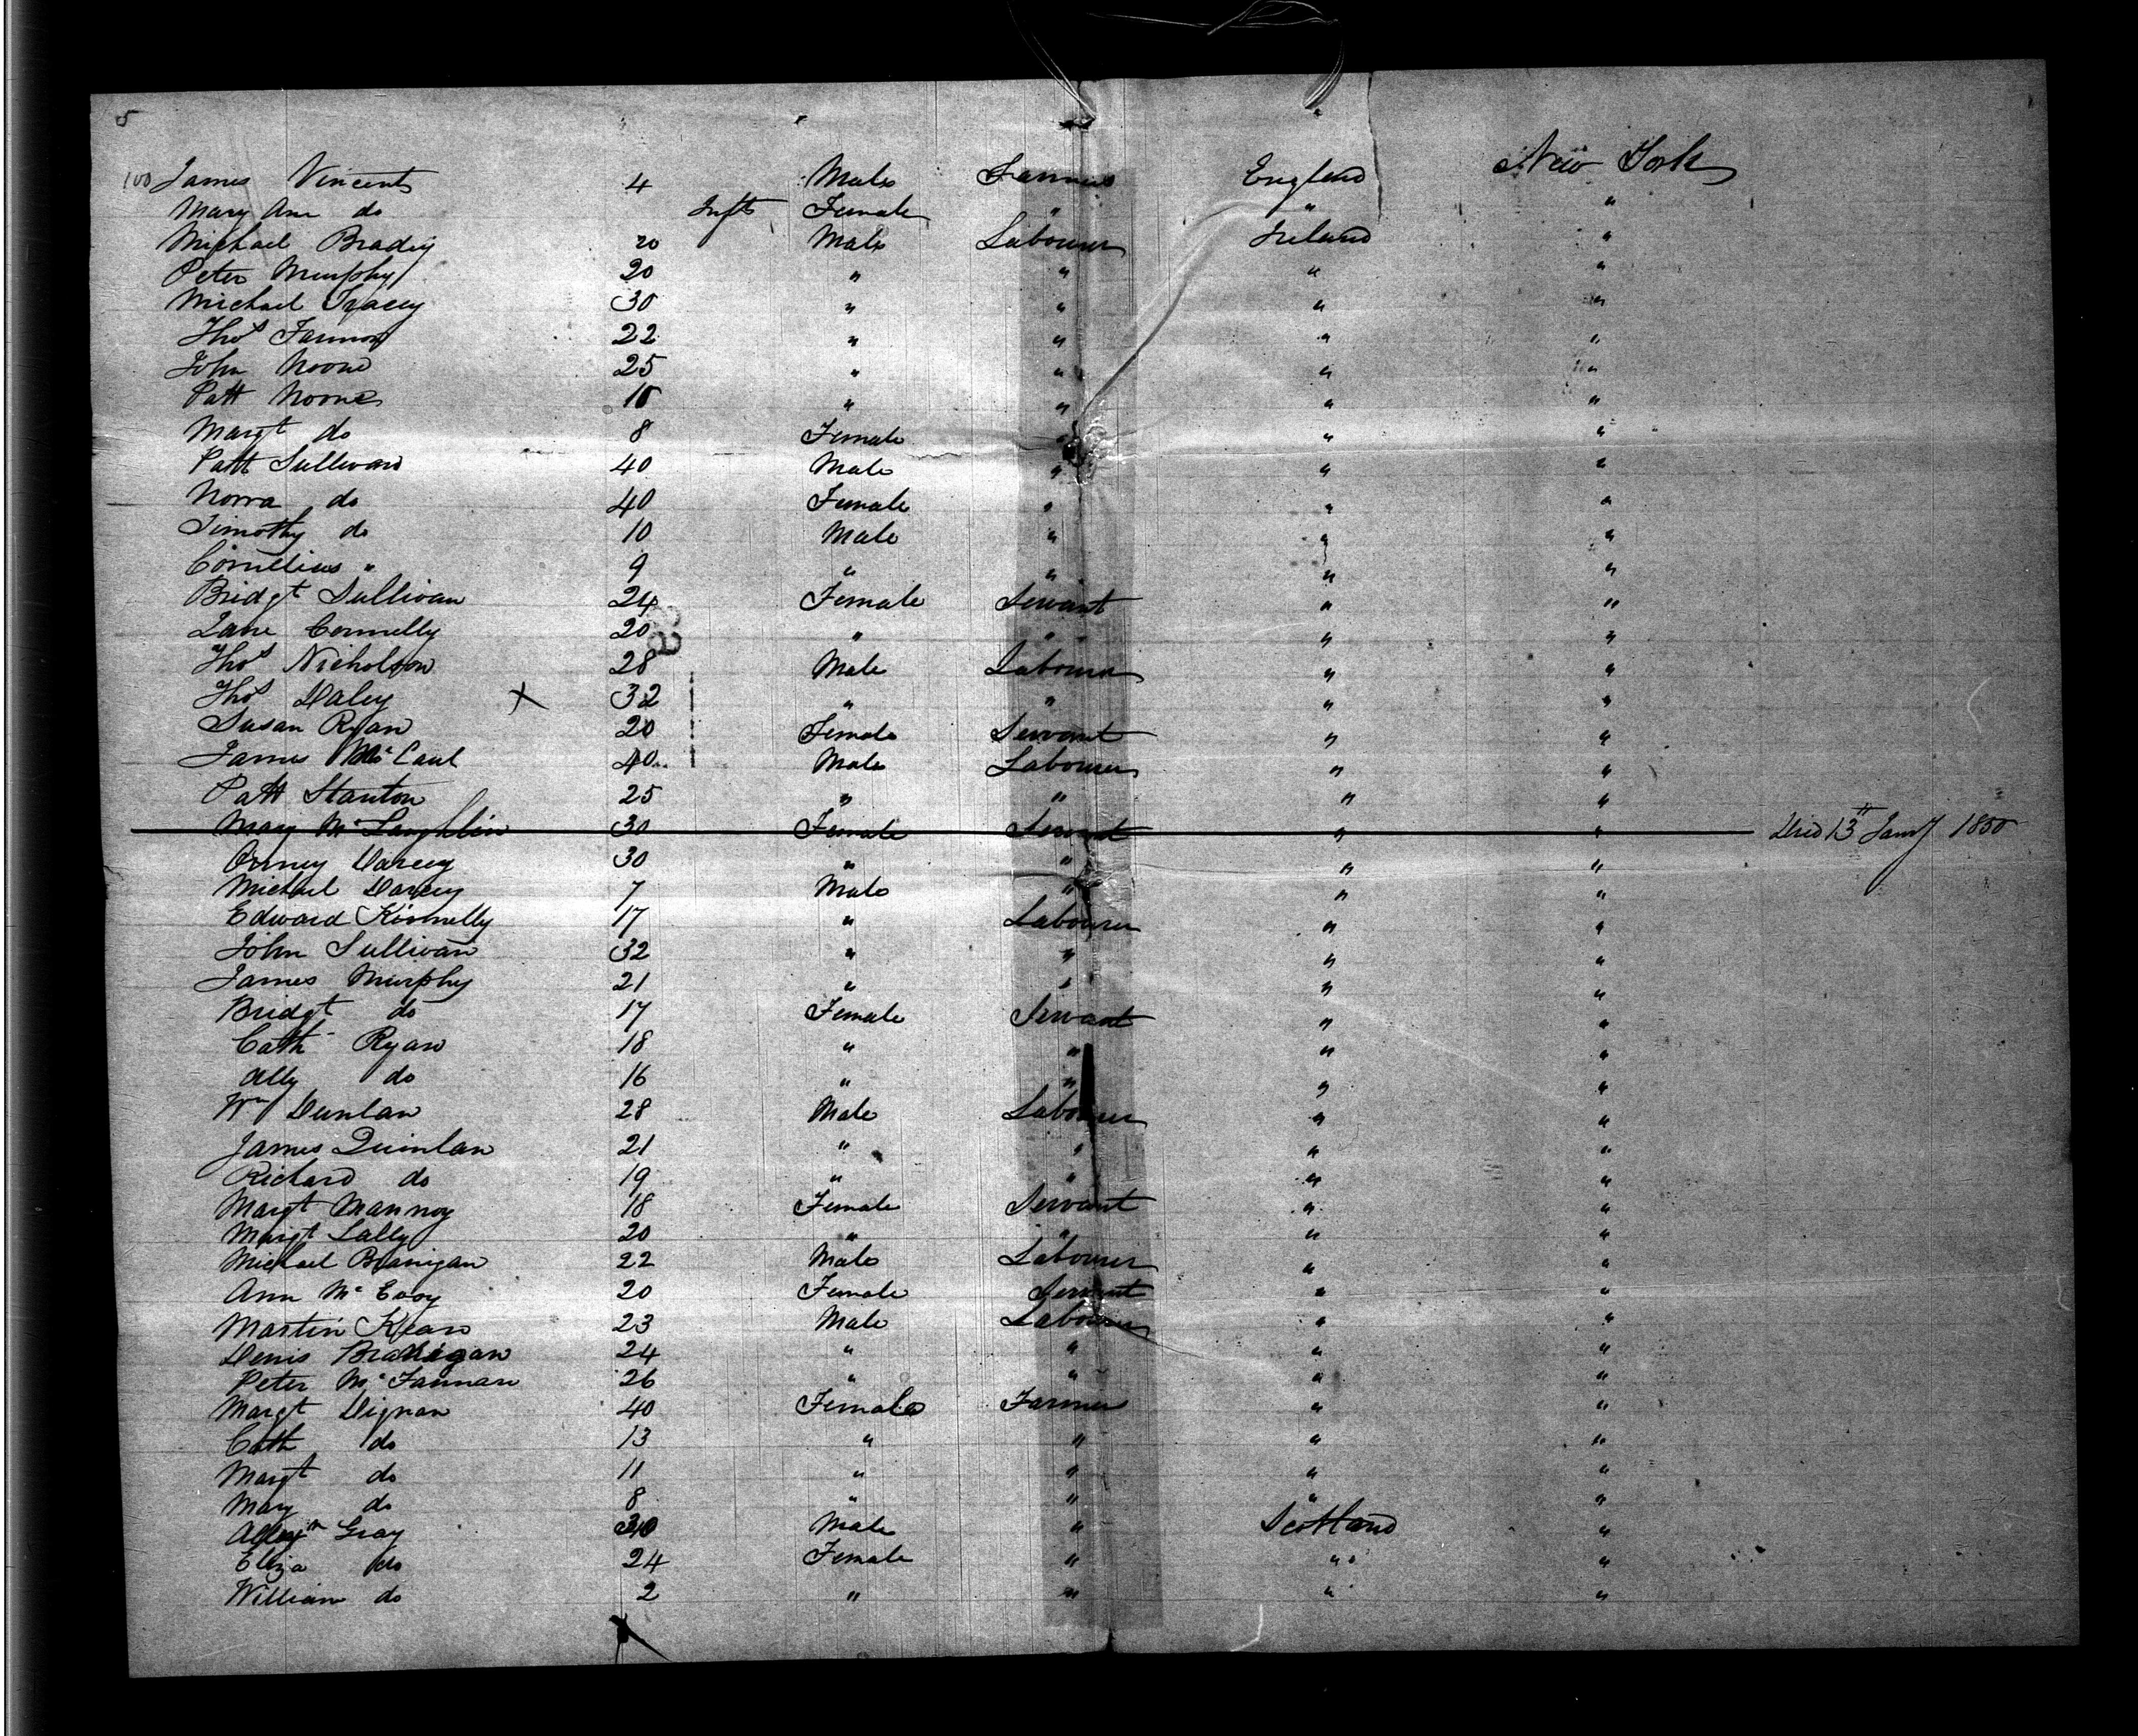 5
100 James Vincent 4 Male Farmer England New York
Mary Ann do Inft Female " " "
Michael Brady 20 Male Labourer Ireland "
Peter Murphy 20 " " " "
Michael Tracey 30 " " " "
Thos Fannon 22 " " " "
John Noone 25 " " " "
Patt Noone " " " "
Margt do 8 Female " " "
Patt Sullivan 40 Male " " "
Norra do 40 Female " " "
Timothy do 10 Male " " "
Cornelius " 9 " " " "
Bridgt Sullivan 24 Female Servant " "
Jane Connelly 20 " " " "
Thos Nicholson 28 Male Labourer " "
Thos Daley X 32 " " " "
Susan Ryan 20 Female Servant " "
James McCaul 40 Male Labourer " "
Patt Stanton 25 " " " "
Mary McLaughlin 30 Female Servant " " Died 13th Jany 1850
Darcey 30 " " " "
Michael Darcey 7 Male " " "
Edward Kinnelly 17 " Labourer " "
John Sullivan 32 " " " "
James Murphy 21 " " " "
Bridgt do 17 Female Servant " "
Cath Ryan 18 " " " "
Ally do 16 " " " "
Wm Dunlan 28 Male Labourer " "
James Quinlan 21 " " " "
Richard do 19 " " " "
Margt Mannoy 18 Female Servant " "
Margt Lally 20 " " " "
Michael Branigan 22 Male Labourer " "
Ann McEvoy 20 Female Servant " "
Martin Kean 23 Male Labourer " "
Denis Branigan 24 " " " "
Peter McFannan 26 " " " "
Margt Dignan 40 Female Farmer " "
Cath do 13 " " " "
Margt do 11 " " " "
Mary do 8 " " " "
Gray Male " Scotland "
Eliza do 24 Female " " "
William do 2 " " " "